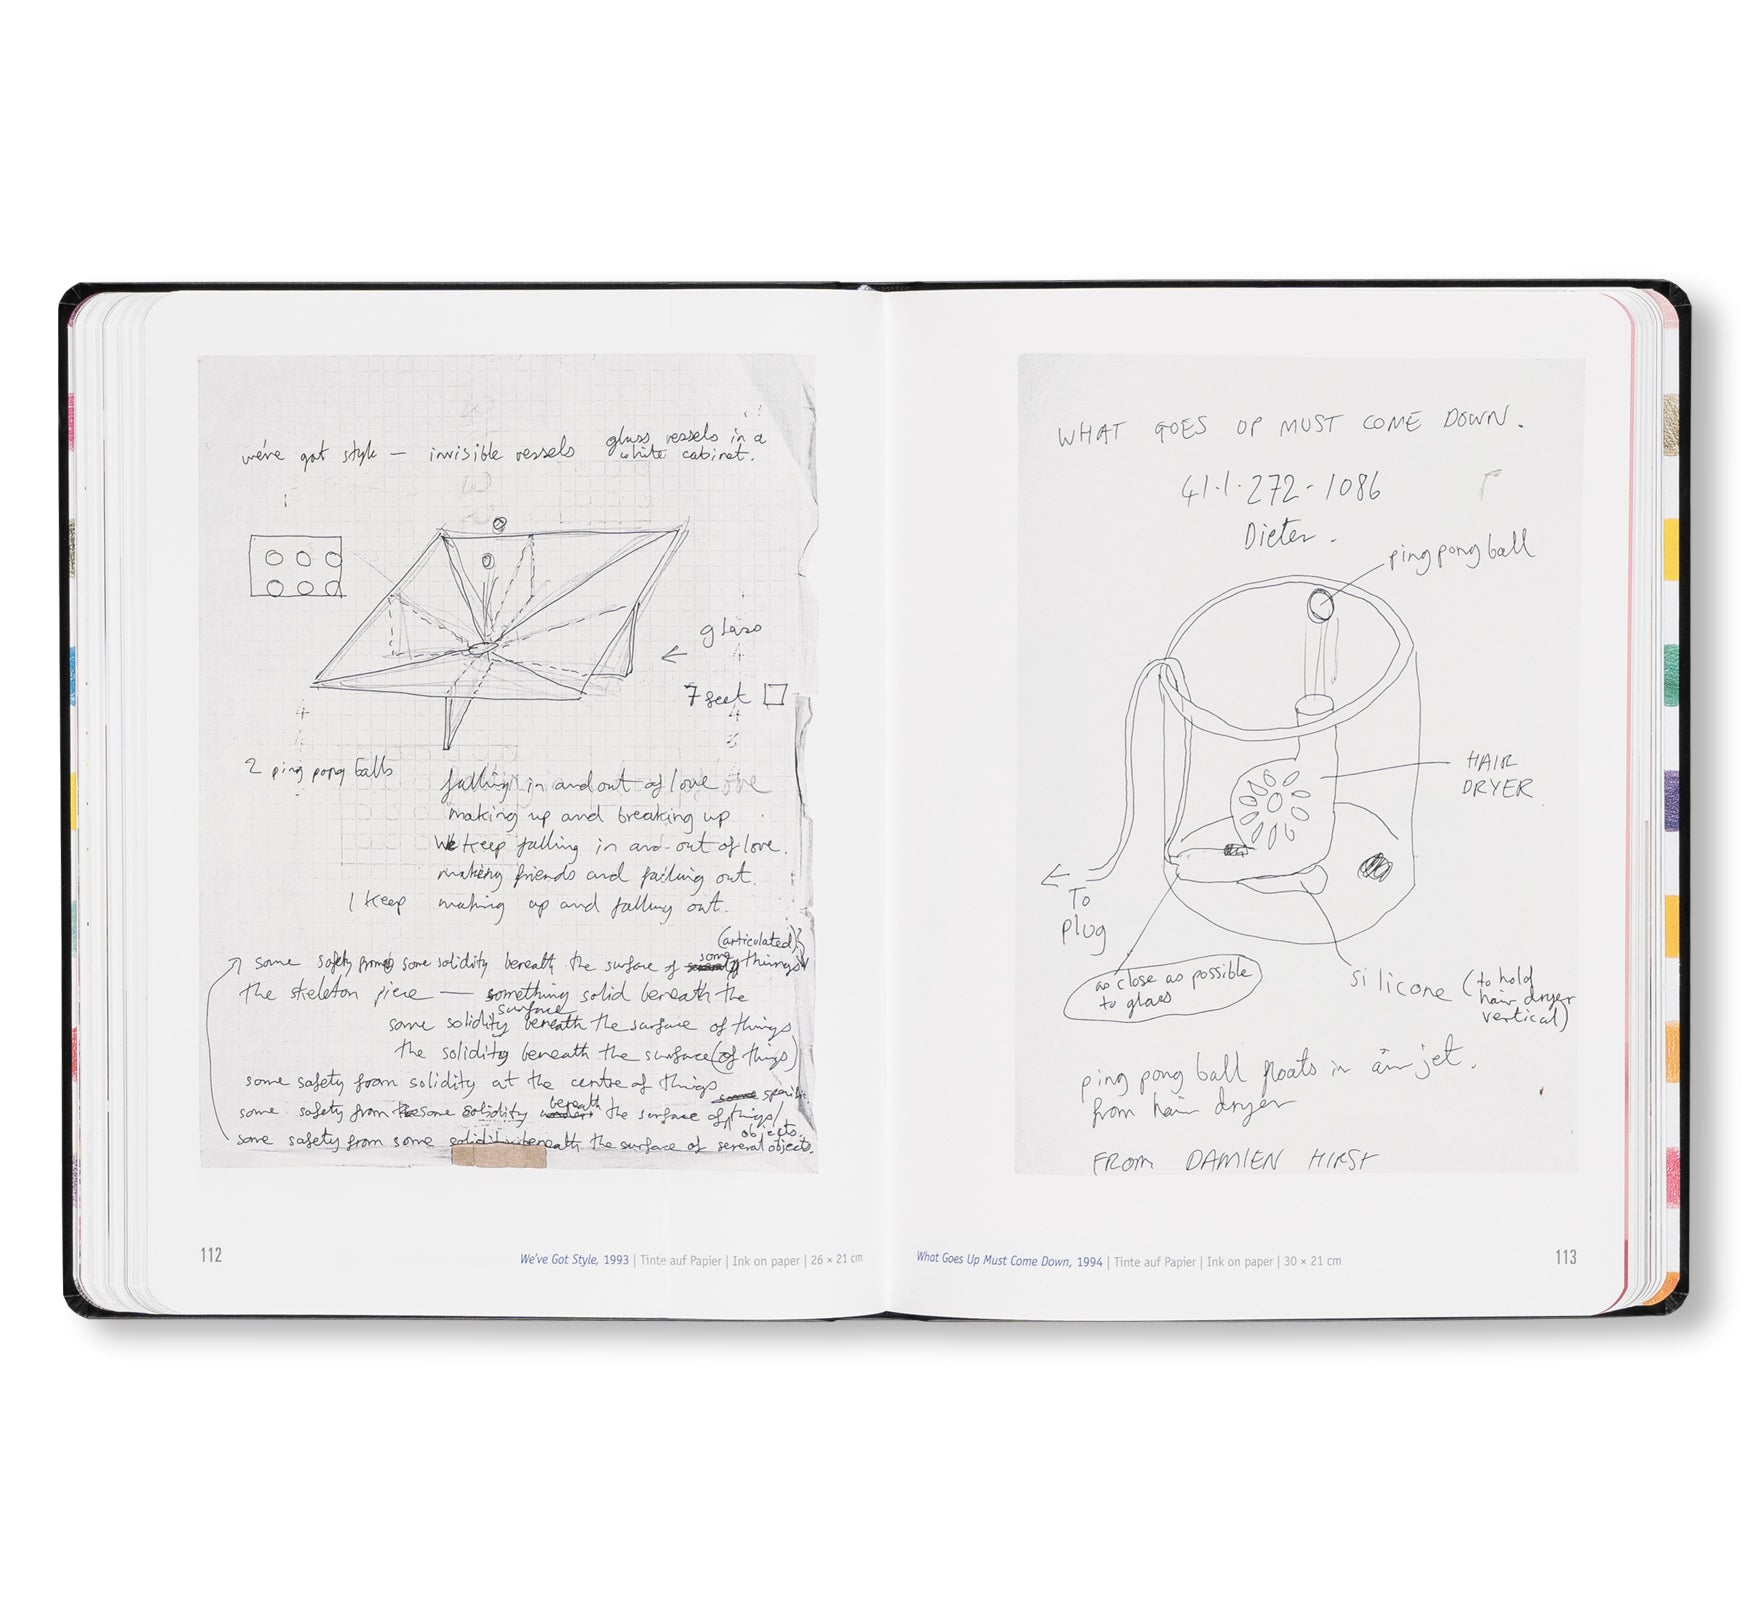 we've got style — invisible vessels glass vessels in a
white cabinet.
glass
7 feet
4
3
2 ping pong balls
falling in and out of love
making up and breaking up
We keep falling in and out of love.
making friends and falling out.
I keep making up and falling out.
(articulated)
some
some safety from some solidity beneath the surface of things
the skeleton piece — something solid beneath the
surface
some solidity beneath the surface of things
the solidity beneath the surface (of things)
some safety from solidity at the centre of things
beneath some
some safety from some solidity under the surface of things/
objects.
some safety from some solidity beneath the surface of several objects.
112
We've Got Style, 1993 | Tinte auf Papier | Ink on paper | 26 × 21 cm
WHAT GOES UP MUST COME DOWN.
41·1·272-1086
Dieter.
ping pong ball
HAIR
DRYER
To
plug
as close as possible
to glass
silicone (to hold
hair dryer
vertical)
ping pong ball floats in air jet.
from hair dryer
FROM DAMIEN HIRST
What Goes Up Must Come Down, 1994 | Tinte auf Papier | Ink on paper | 30 × 21 cm
113